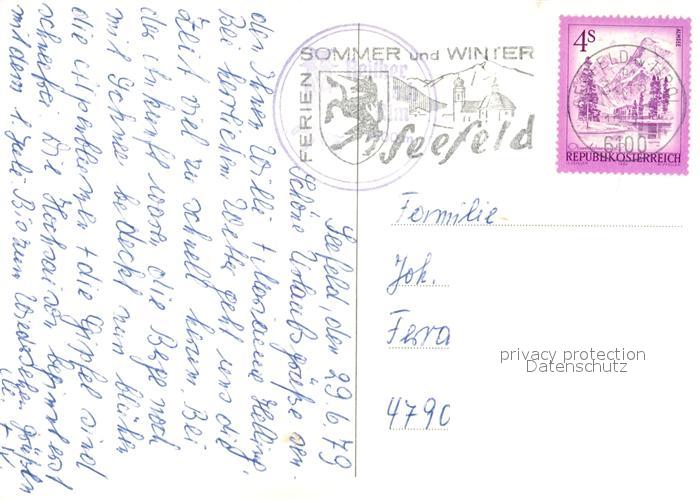 Seefeld, den 29.6.79
Schöne Urlaubsgrüße sen-
den Ihnen Willi + Marianne
Bei herrlichem Wetter geht uns die
Zeit viel zu schnell herum. Bei
der Ankunft waren die Berge noch
mit Schnee bedeckt nun blühen
die Alpenblumen + die Gipfel sind
schneefrei. Die Hochsaison beginnt erst
mit dem 1. Juli. Bis zum Wiedersehen grüßen
FERIEN
SOMMER und WINTER
seefeld
4s
ALMSEE
REPUBLIK ÖSTERREICH
6100
Familie
Joh.
4790
privacy protection
Datenschutz